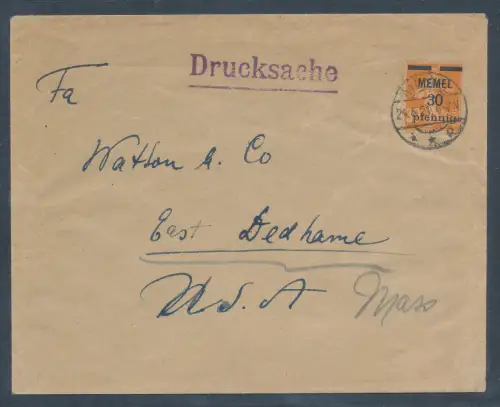 Drucksache
MEMEL
30
pfennig
Fa
Watson & Co
East Dedhame
U.S.A Mass